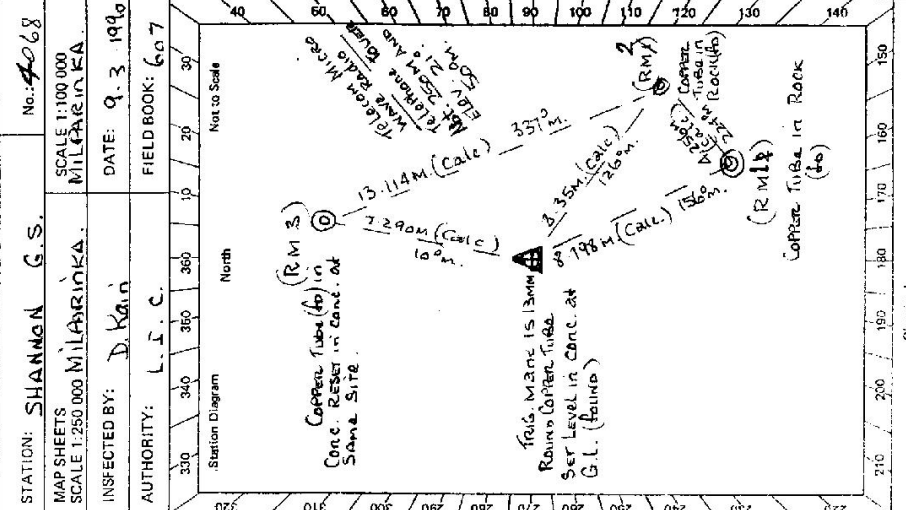 STATION: SHANNON G.S.
No.: 4068
MAP SHEETS
SCALE 1:250 000 MILPARINKA.
SCALE 1:100 000
MILPARINKA.
INSPECTED BY: D. Kain
DATE: 9.3.1990
AUTHORITY: L.I.C.
FIELD BOOK: 607
Station Diagram
North
Not to Scale
330
340
350
360
10
20
30
40
60
70
80
90
100
110
120
130
140
150
160
170
180
190
200
210
TELECOM MICRO
WAVE RADIO
TELEPHONE TOWER
50 M.
13.114M. (Calc)
337°
M.
(RM3)
COPPER TUBE (fo) in
Conc. RESET in Conc. at
SAME SITE.
7.290M (Calc)
10°M.
8.35M. (Calc)
126°M.
8.798M. (Calc.) 156°M.
4.256M
(Calc)
2
(RM1)
COPPER
TUBE in
ROCK (fo)
COPPER TUBE in ROCK
(fo)
TRIG. MARK IS 13MM
ROUND COPPER TUBE
SET LEVEL in Conc. at
G.L. (FOUND)